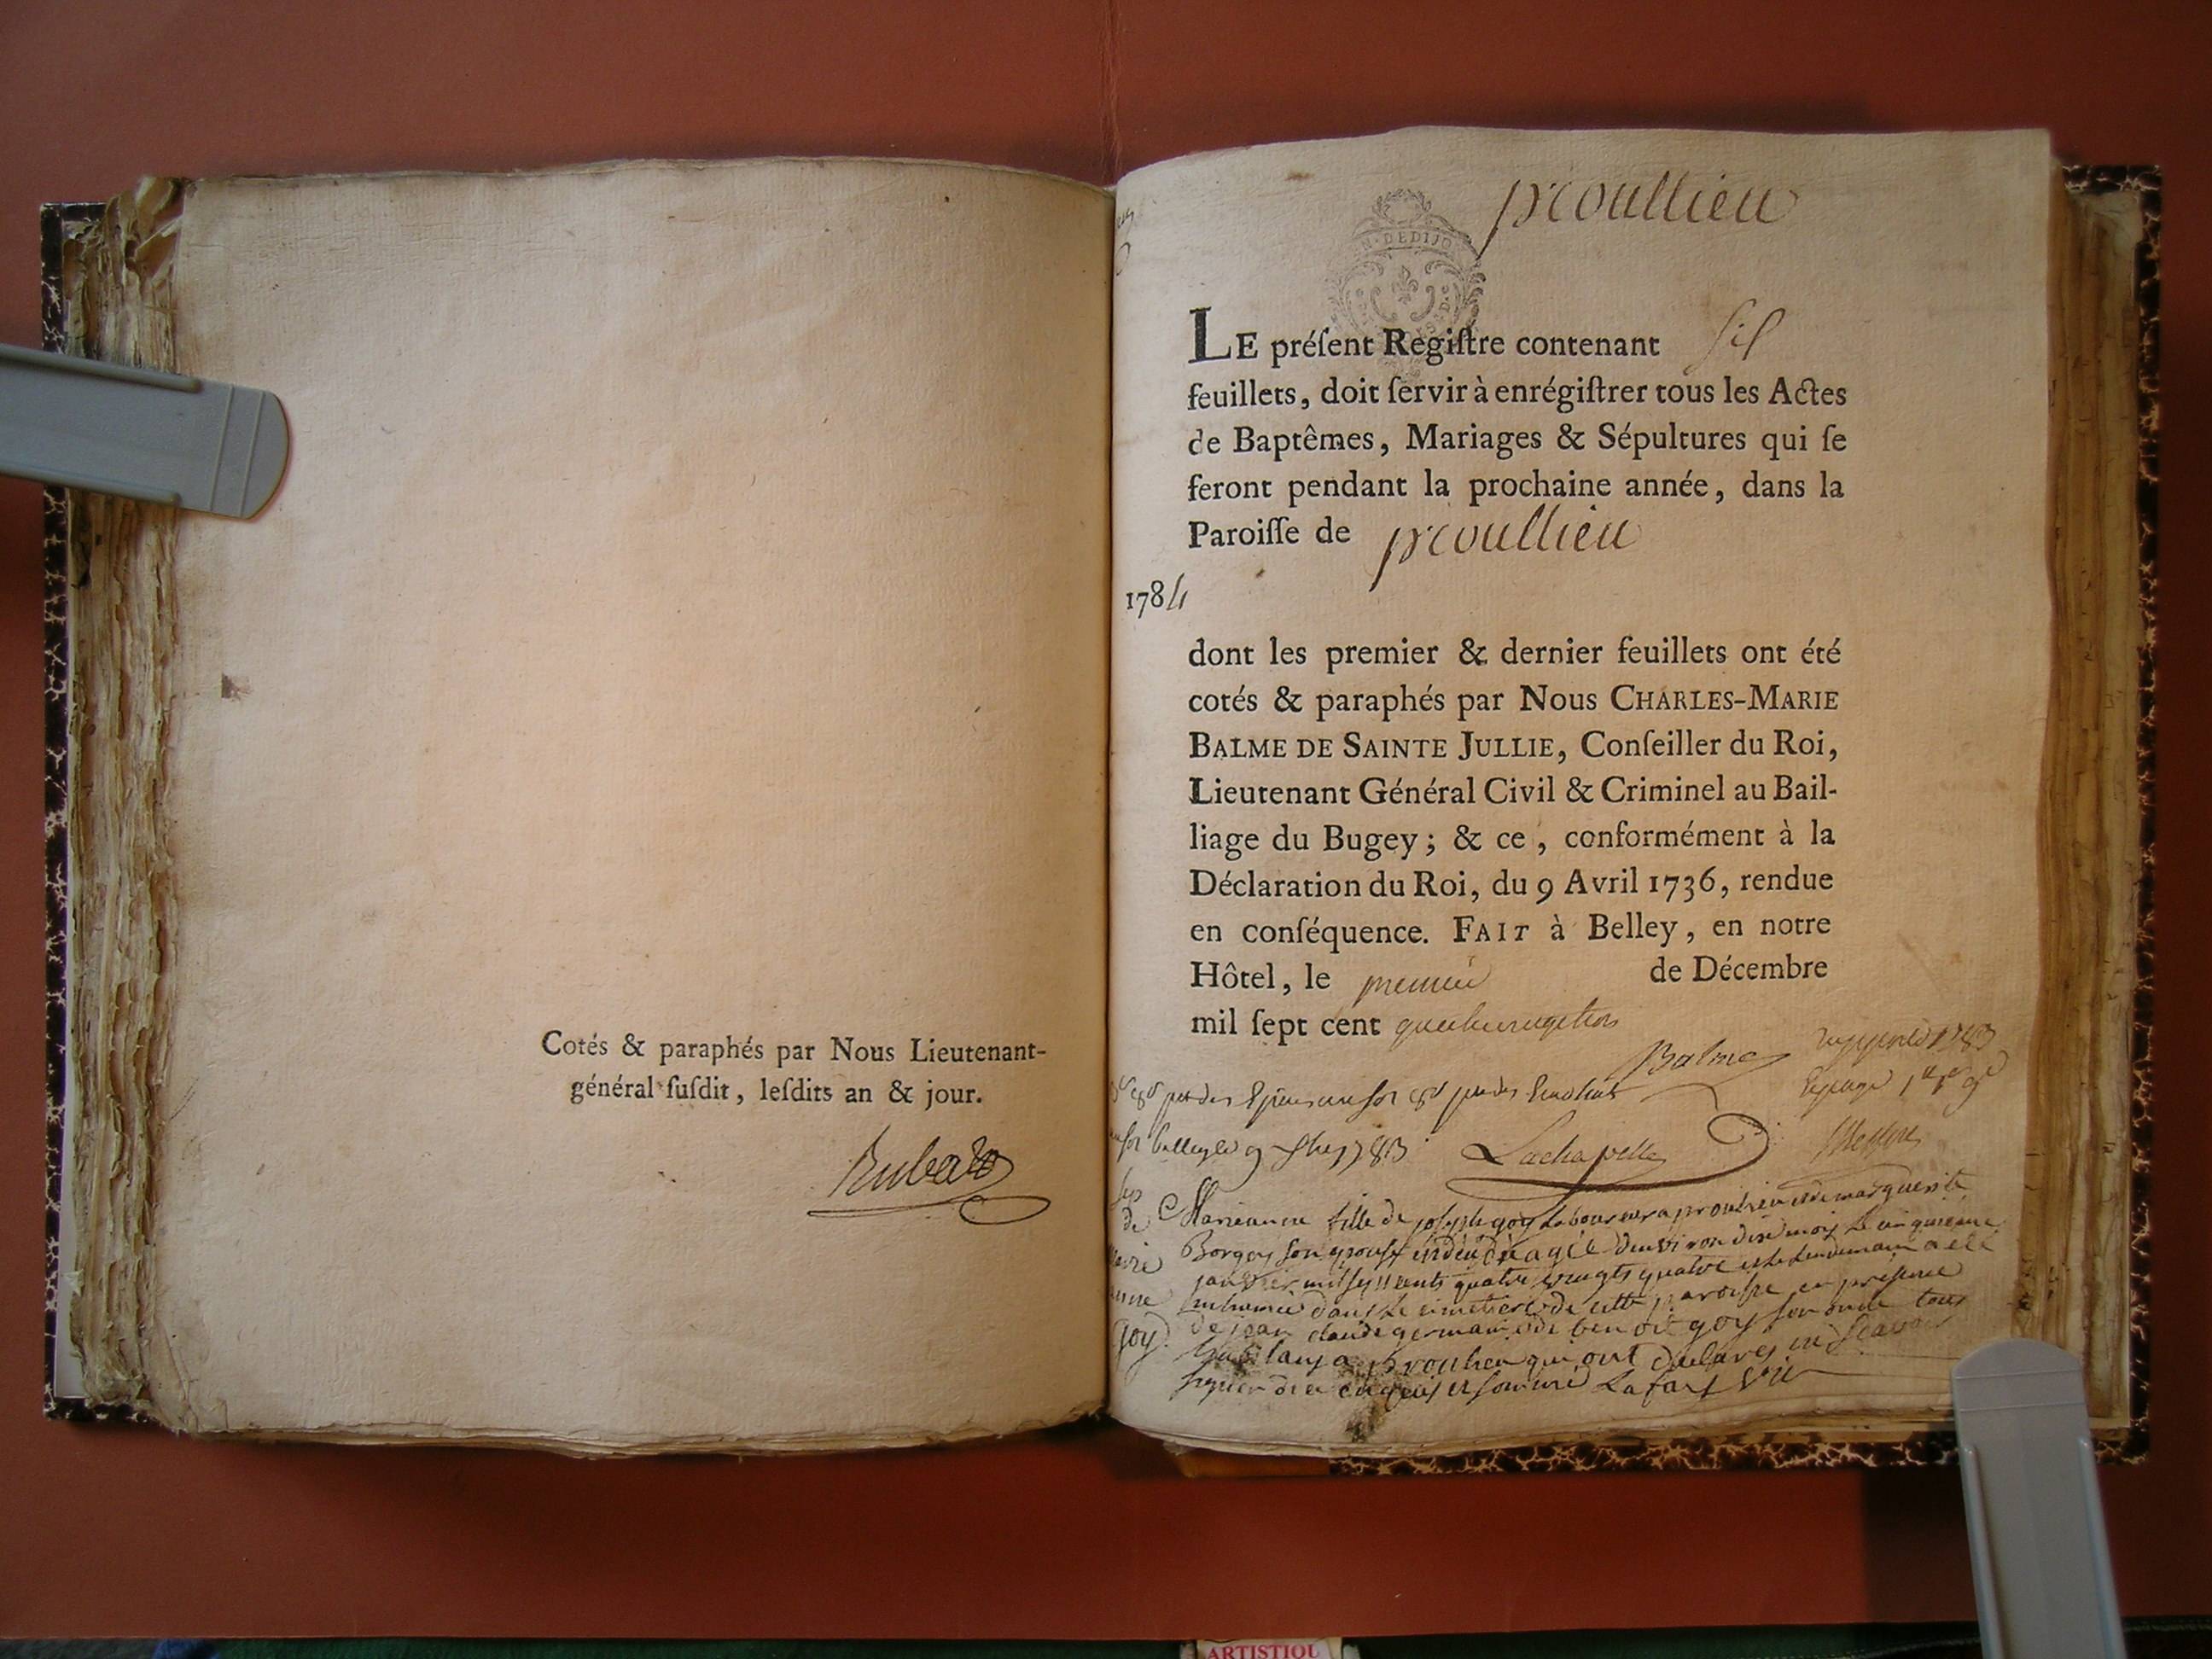 Cotés & paraphés par Nous Lieutenant-
général ſuſdit, leſdits an & jour.
proullieu
N · DE DIJO
LE préſent Regiſtre contenant six
feuillets, doit ſervir à enrégiſtrer tous les Actes
de Baptêmes, Mariages & Sépultures qui ſe
feront pendant la prochaine année, dans la
Paroiſſe de proullieu
1784
dont les premier & dernier feuillets ont été
cotés & paraphés par Nous CHARLES-MARIE
BALME DE SAINTE JULLIE, Conſeiller du Roi,
Lieutenant Général Civil & Criminel au Bail-
liage du Bugey; & ce, conformément à la
Déclaration du Roi, du 9 Avril 1736, rendue
en conſéquence. FAIT à Belley, en notre
Hôtel, le premier de Décembre
mil ſept cent quatrevingttrois
Balme
Lachapelle
Sep
de
Marie
anne
Goy
Marieanne fille de joseph goy laboureur a proulieu et de marguerite
Borgey son epouse est décédée agée d'environ dix mois le cinquieme
janvier mil sept cents quatre vingts quatre et le lendemain a été
inhumée dans le cimetiere de cette paroisse en presence
de jean claude germain et de benoit goy son oncle tous
habitans a proulieu qui ont declarés ne scavoir
signer de ce enquis et sommé
ARTISTIQU